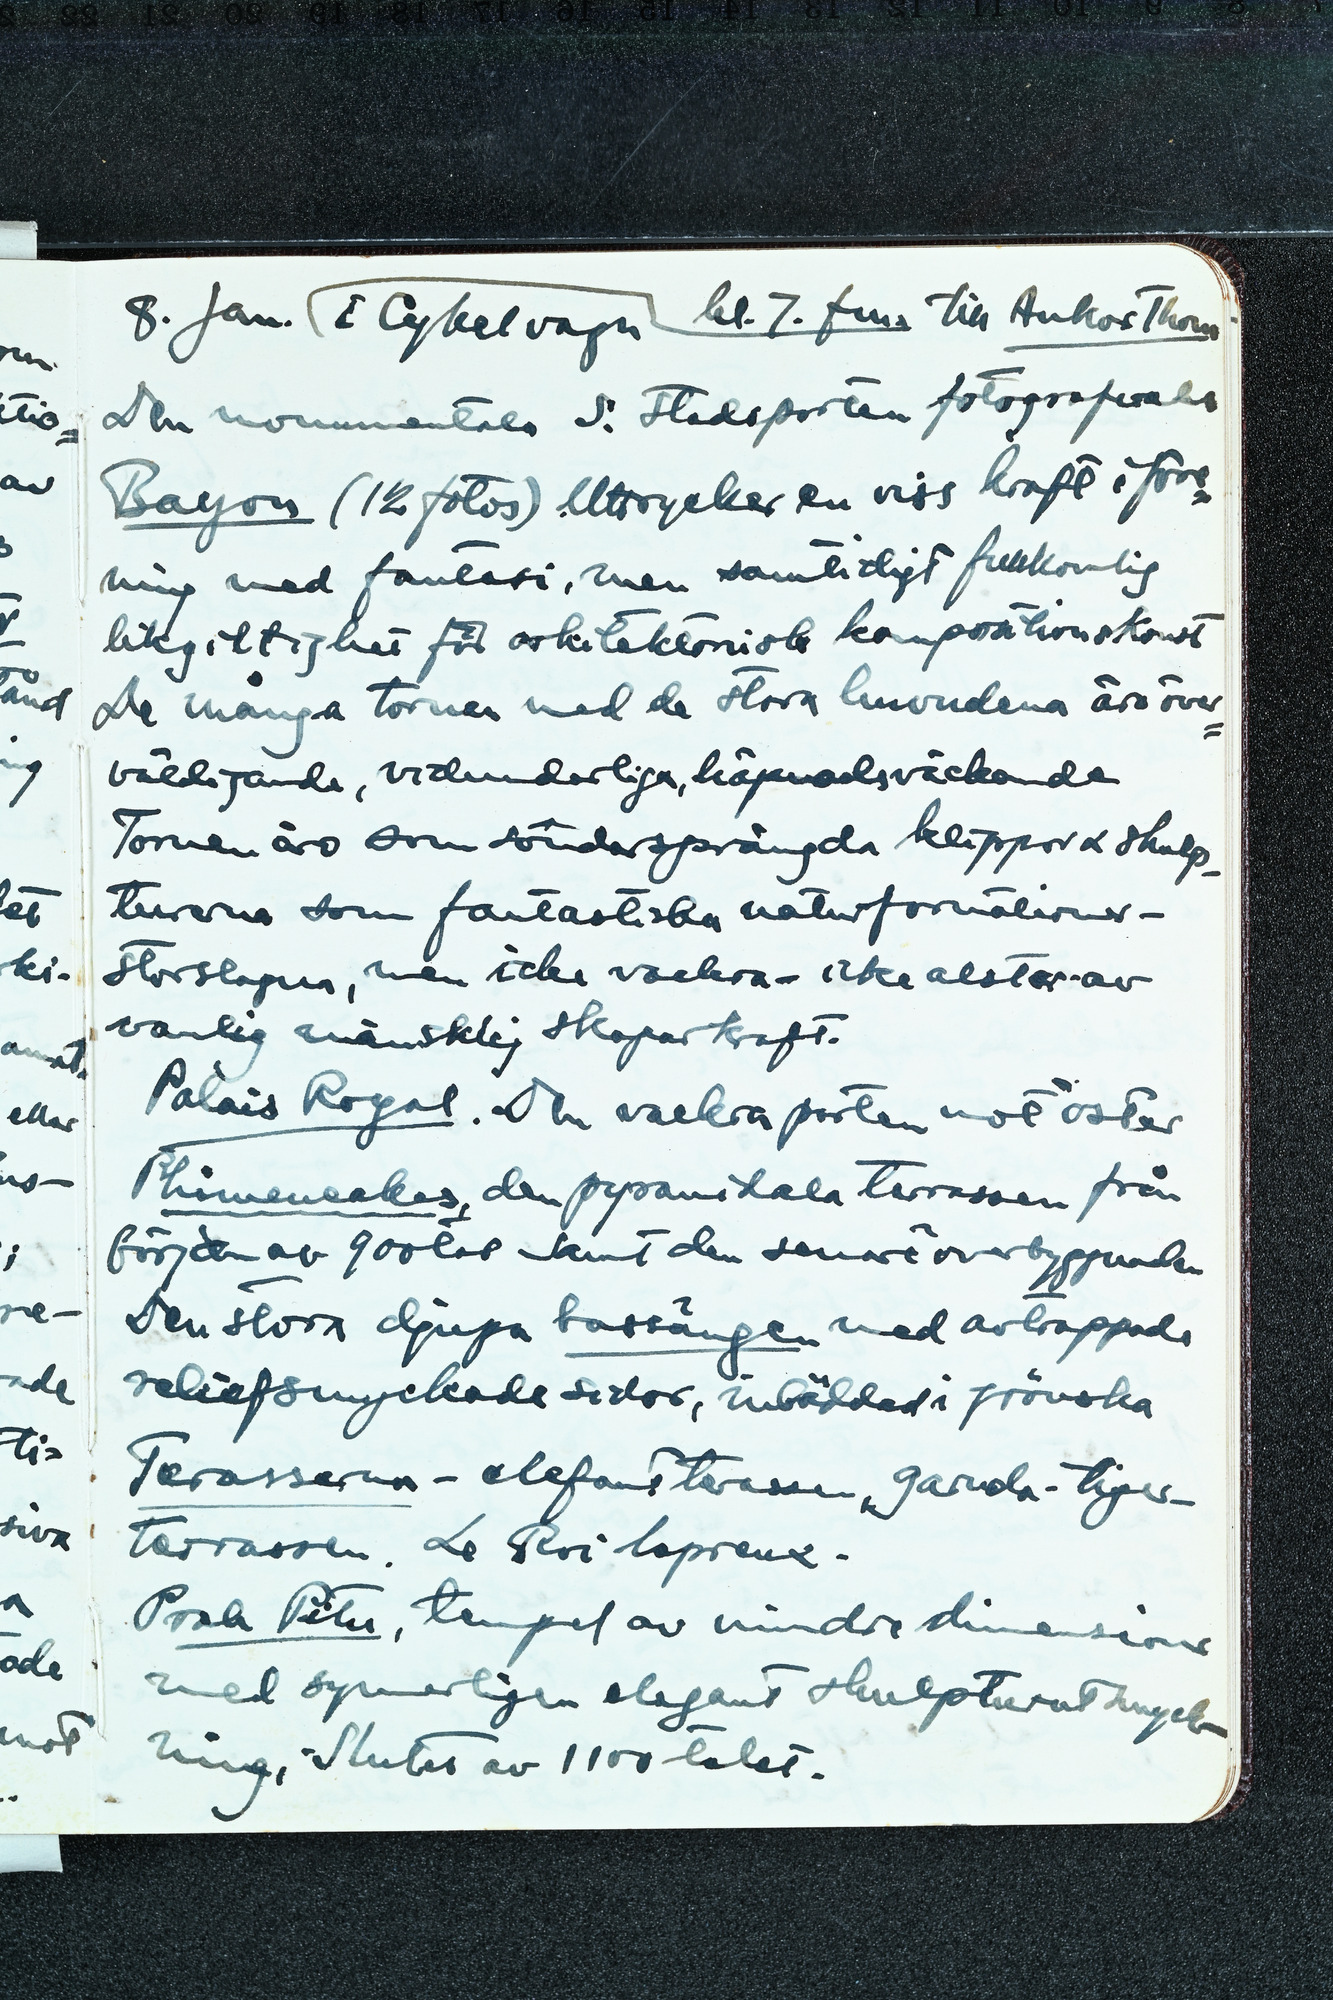 8. Jan. (I Cykelvagn kl. 7. fm. till Ankor Thom
Den monumentala S. Stadsporten fotograferades
Bayon (12 fotos) Uttrycker en viss kraft i före=
ning med fantasi, men samtidigt fullkomlig
likgiltighet för arkitektonisk kompositionskonst
De många tornen med de stora huvudena äro över=
väldigande, vidunderliga, häpnadsväckande
Tornen äro som söndersprängda klippor & skulp-
turerna som fantastiska naturformationer-
Storslagna, men icke vackra- icke alster av
vanlig mänsklig skaparkraft.
Palais Royal. Den vackra porten mot öster
Phimeneakas, den pyramidala terrassen från
början av 900talet samt den senare överbyggnaden
Den stora djupa bassängen med avtrappade
reliefsmyckade sidor, inbäddad i grönska
Terasserna - elefantterassen, garuda- tiger-
terrassen. Le Roi lepreux.
Prah Pitu, tempel av mindre dimensioner
med synnerligen elegant skulpturutsmyck-
ning, Slutet av 1100 talet.